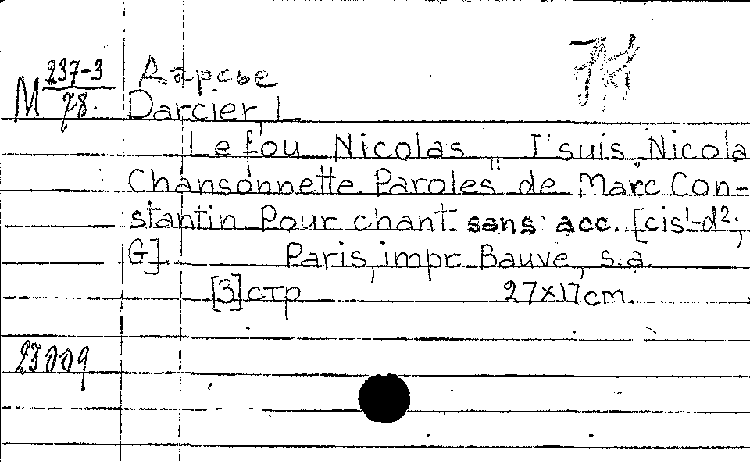 M 237-3/78. Дарсье
Darcier, L
Le fou Nicolas „J'suis Nicola"
Chansonnette Paroles de Marc Con-
stantin Pour chant sans acc. [cis¹-d²;
G]. Paris, impr. Bauve, s.a.
[3] стр 27x17 cm.
23009